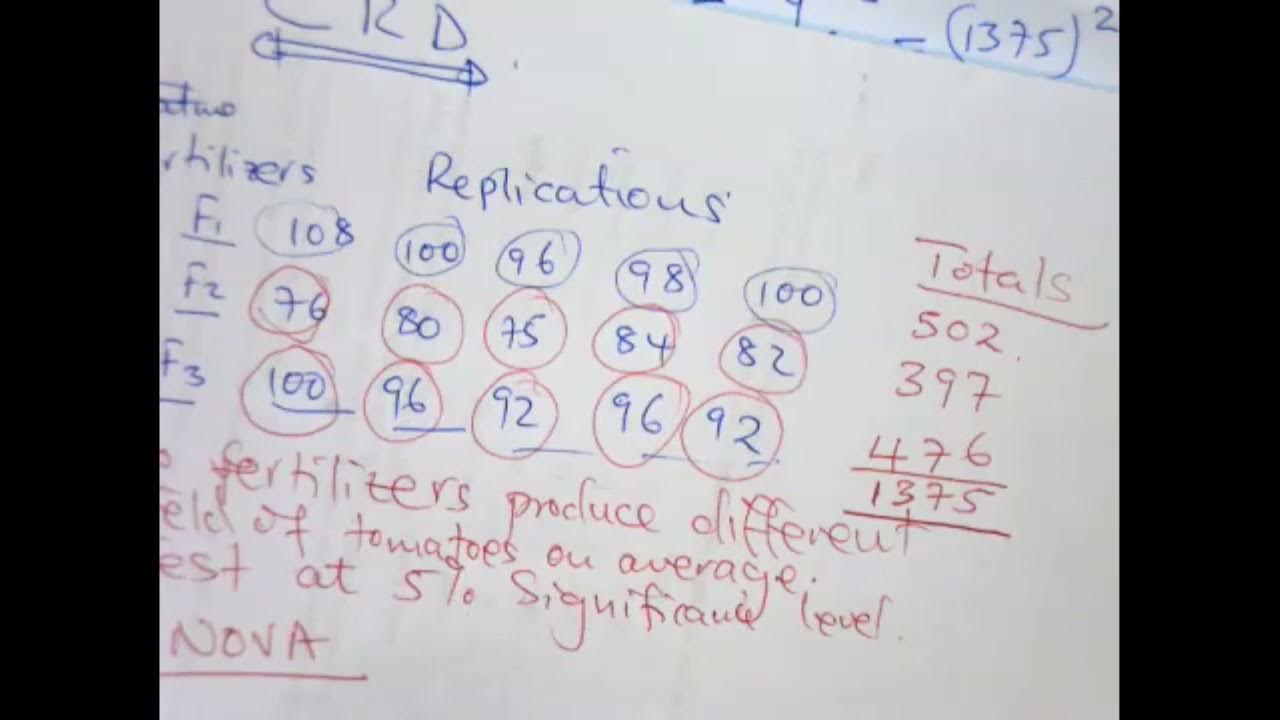 CRD
= (1375)²
rtilizers Replications
F1 108 100 96 98 100
F2 76 80 75 84 82
F3 100 96 92 96 92
Totals
502
397
476
1375
fertilizers produce different
eld of tomatoes on average.
est at 5% Significance level.
NOVA